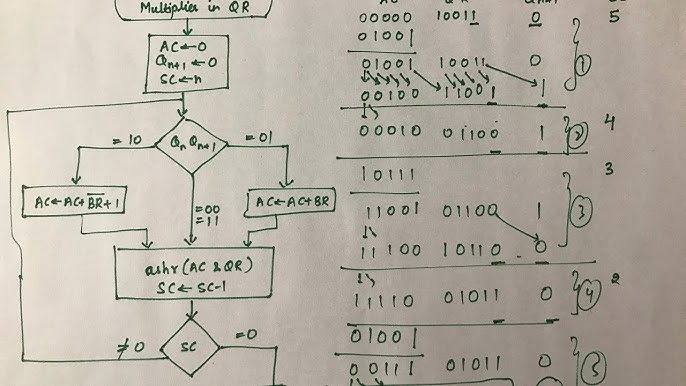 Multiplier in QR
AC←0
Qn+1←0
SC←n
Qn Qn+1
=10
=01
=00
=11
AC←AC+B̅R̅+1
AC←AC+BR
ashr(AC & QR)
SC←SC-1
SC
≠0
=0
00000 10011 0 5
01001
01001 10011 0
00100 11001 1
①
00010 01100 1 ② 4
10111 3
11001 01100 1
11100 10110 0
③
11110 01011 0 ④ 2
01001
00111 01011 0
⑤